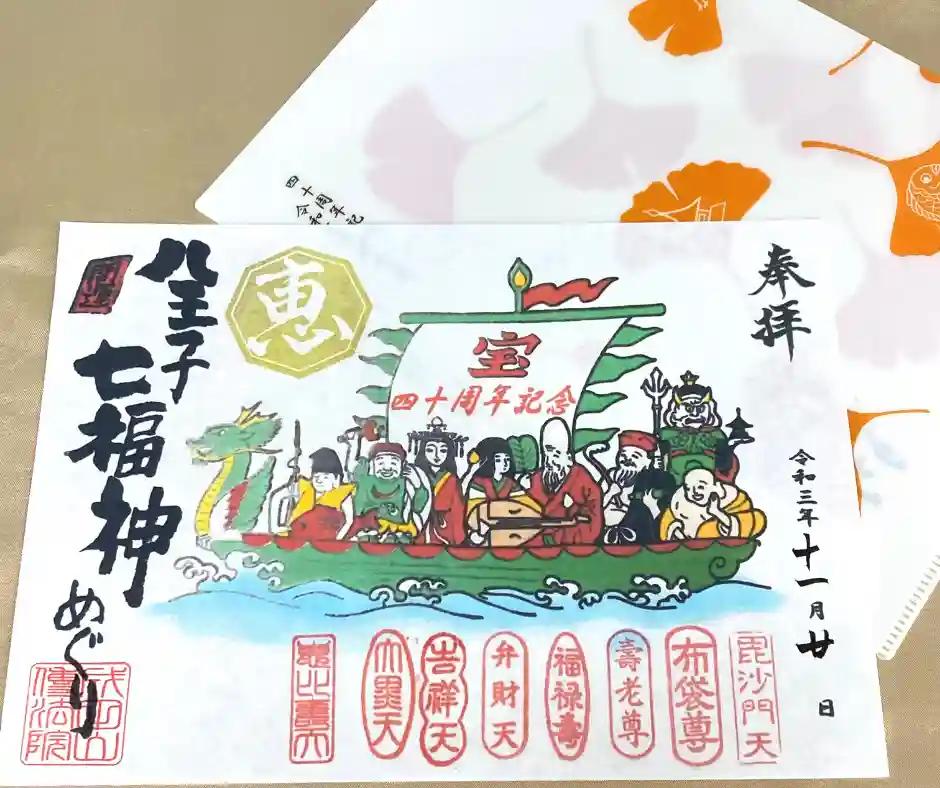 四十周年記
令和
奉拝
令和三年十一月廿日
宝
四十周年記念
恵
八王子
七福神
めぐり
毘沙門天
布袋尊
壽老尊
福禄壽
弁財天
吉祥天
大黒天
恵比壽天
傳法院